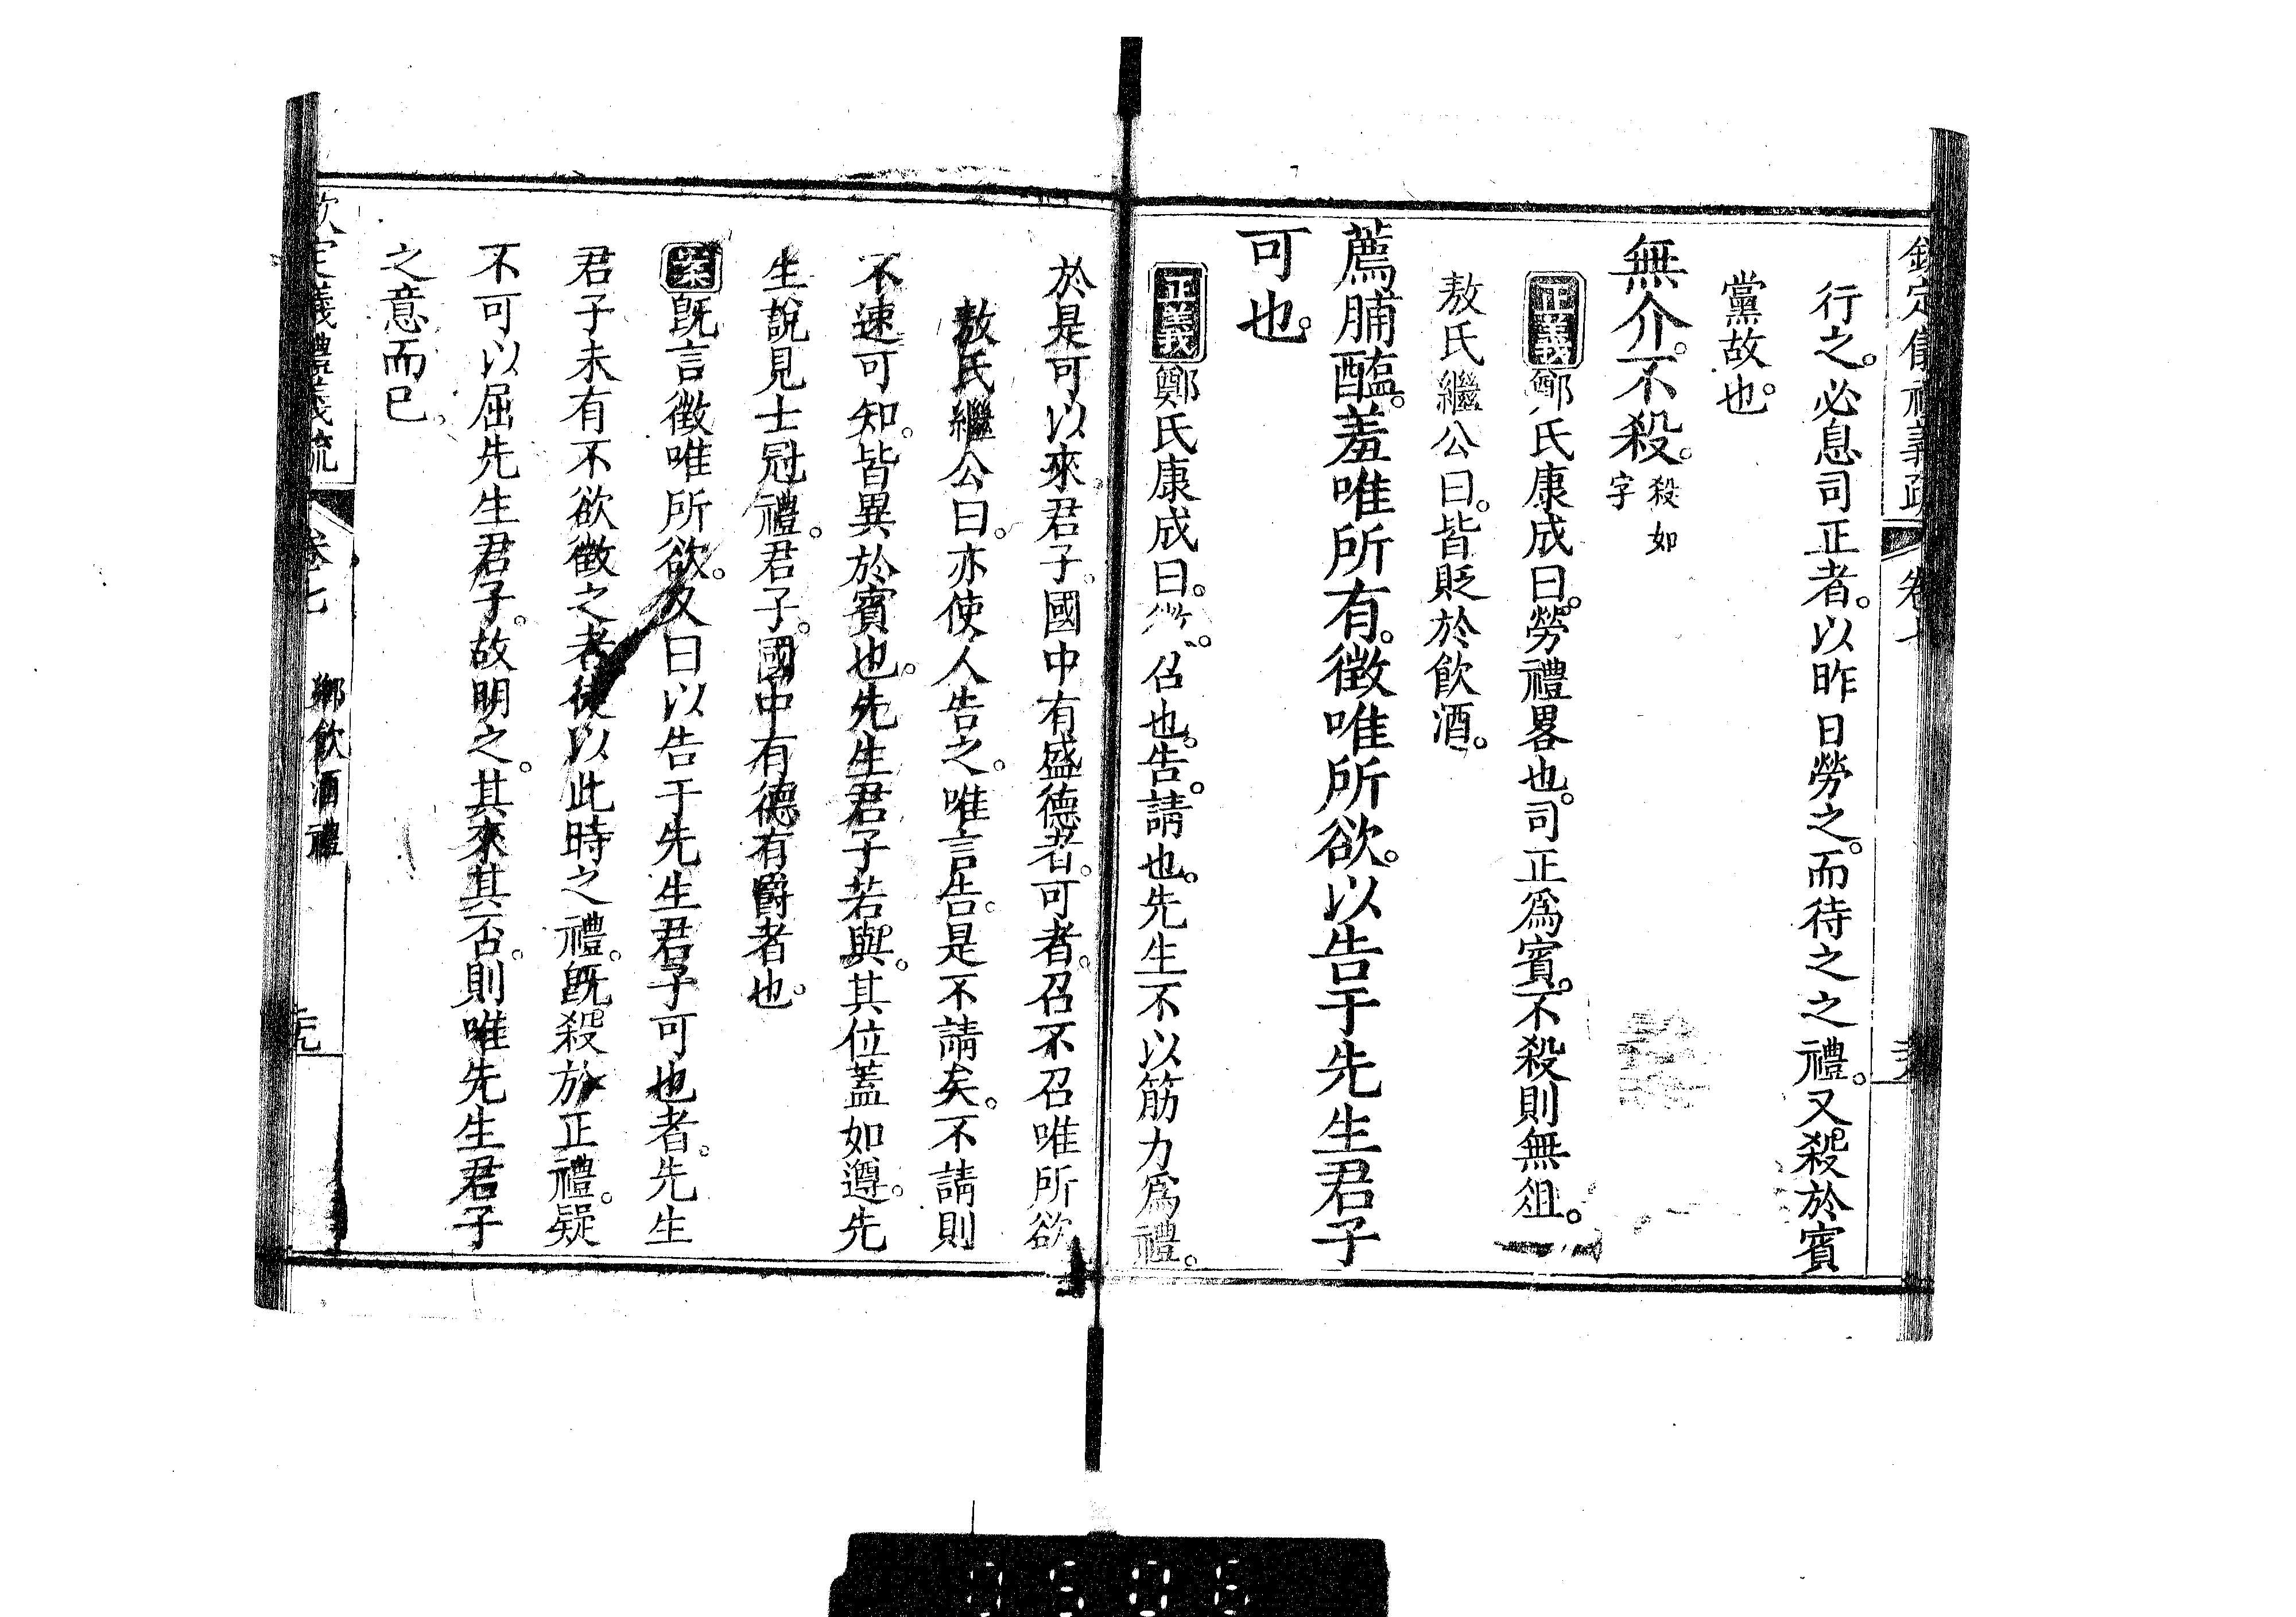 行之。必息司正者。以昨日勞之。而待之之禮。又殺於賓
黨故也。
無介。不殺。殺如
字
正義鄭氏康成曰。勞禮畧也。司正為賓。不殺則無俎。
敖氏繼公曰。皆貶於飲酒。
薦脯醢。羞唯所有。徵唯所欲。以告于先生君子
可也。
正義鄭氏康成曰。召也。告。請也。先生不以筋力為禮。
於是可以來。君子。國中有盛德者。可者。召不召唯所欲
敖氏繼公曰。亦使人告之。唯言告。是不請矣。不請則
不速可知。皆異於賓也。先生君子若與。其位蓋如遵。先
生說見士冠禮。君子。國中有德有爵者也。
案既言徵唯所欲。又曰以告于先生君子可也者。先生
君子未有不欲徵之者。徒以此時之禮。既殺於正禮。疑
不可以屈先生君子。故明之。其來其否。則唯先生君子
之意而已。
欽定儀禮義疏 卷七 鄉飲酒禮